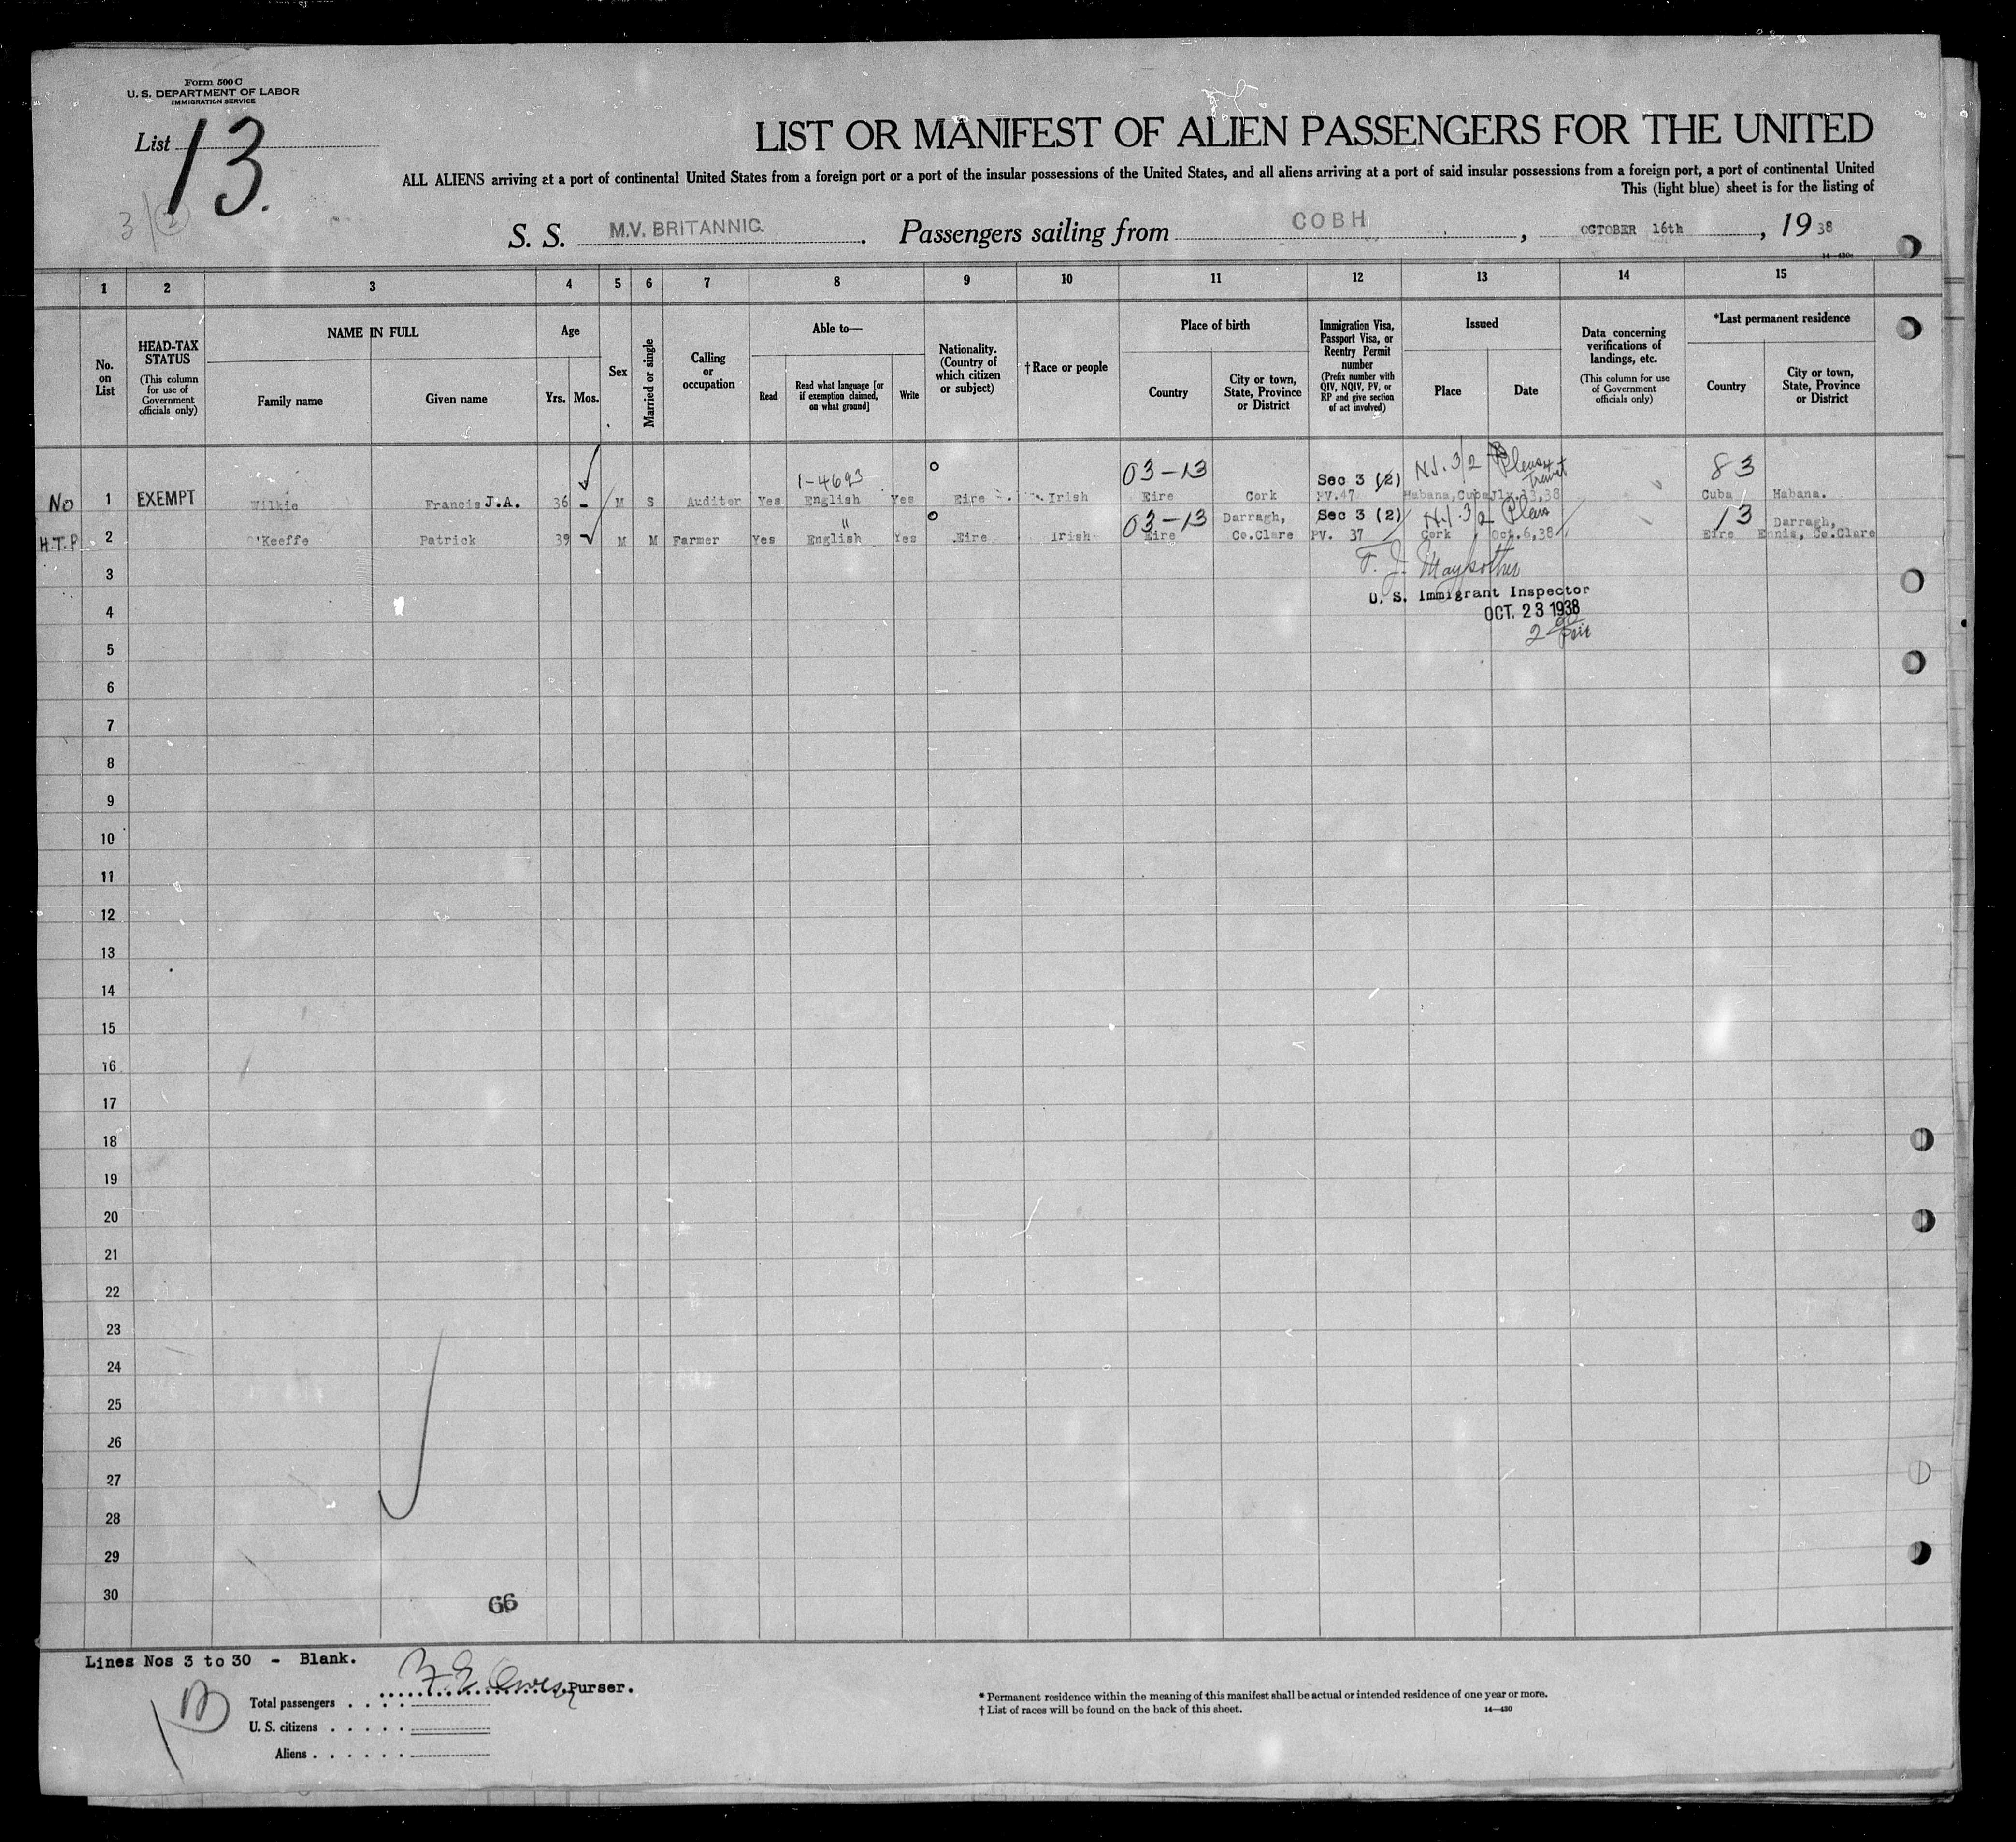 Form 500 C
U. S. DEPARTMENT OF LABOR
IMMIGRATION SERVICE
List 13.
3/2
LIST OR MANIFEST OF ALIEN PASSENGERS FOR THE UNITED
ALL ALIENS arriving at a port of continental United States from a foreign port or a port of the insular possessions of the United States, and all aliens arriving at a port of said insular possessions from a foreign port, a port of continental United
This (light blue) sheet is for the listing of
S. S. M.V. BRITANNIC. Passengers sailing from COBH, OCTOBER 16th, 1938
1 2 3 4 5 6 7 8 9 10 11 12 13 14 15
No. on List
HEAD-TAX STATUS (This column for use of Government officials only)
NAME IN FULL
Family name
Given name
Age
Yrs. Mos.
Sex
Married or single
Calling or occupation
Able to—
Read
Read what language [or if exemption claimed, on what ground]
Write
Nationality. (Country of which citizen or subject)
†Race or people
Place of birth
Country
City or town, State, Province or District
Immigration Visa, Passport Visa, or Reentry Permit number (Prefix number with QIV, NQIV, PV, or RP and give section of act involved)
Issued
Place
Date
Data concerning verifications of landings, etc. (This column for use of Government officials only)
*Last permanent residence
Country
City or town, State, Province or District
1-4693 03-13 Sec 3 (2) 83
No 1 EXEMPT Wilkie Francis J.A. 36 - M S Auditor Yes English Yes Eire Irish Eire Cork PV.47 Habana, Cuba Jly.13,38 Cuba Habana.
" 03-13 Darragh, Sec 3 (2) 13 Darragh,
H.T.P 2 O'Keeffe Patrick 39 M M Farmer Yes English Yes Eire Irish Eire Co.Clare PV. 37 Cork Oct.6,38 Eire Ennis, Co.Clare
3
U. S. Immigrant Inspector
4
OCT. 23 1938
5
6
7
8
9
10
11
12
13
14
15
16
17
18
19
20
21
22
23
24
25
26
27
28
29
30
66
Lines Nos 3 to 30 - Blank.
Purser.
Total passengers
U. S. citizens
Aliens
* Permanent residence within the meaning of this manifest shall be actual or intended residence of one year or more.
† List of races will be found on the back of this sheet.
14—430